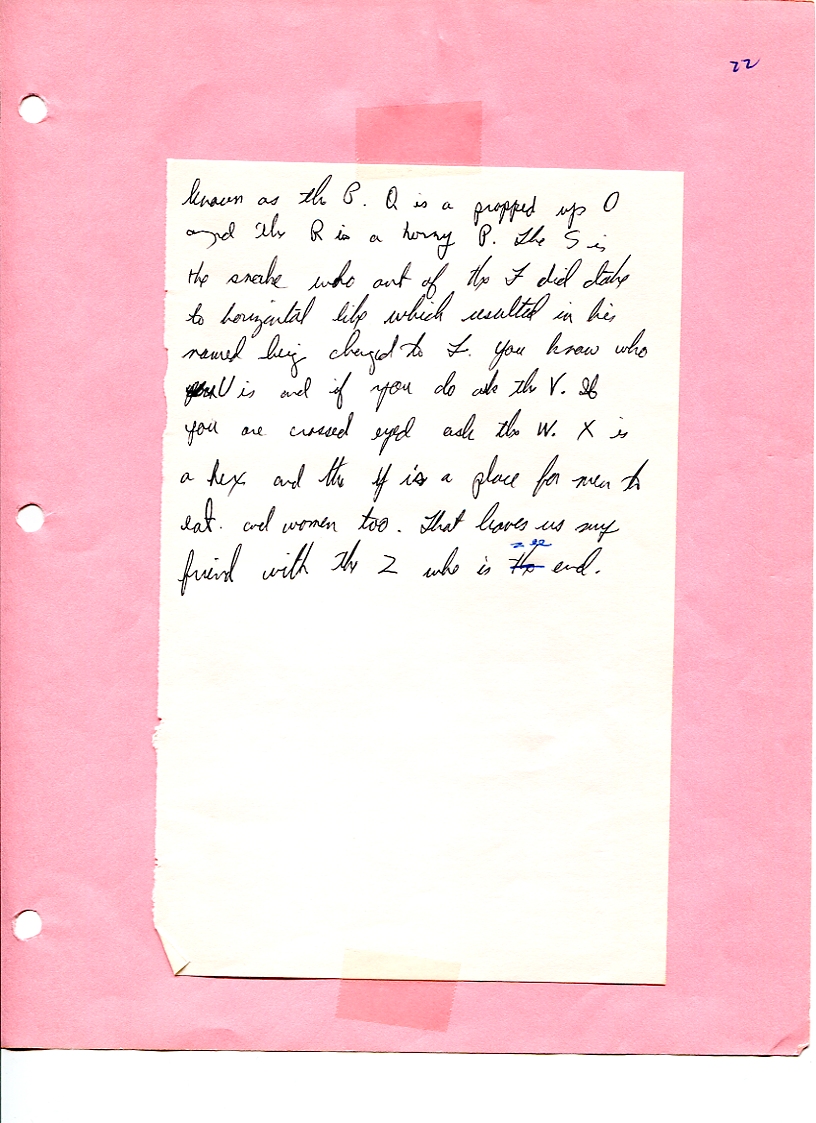 22
known as the P. Q is a propped up O
and the R is a horny P. The S is
the snake who out of the I did take
to horizontal life which resulted in his
named being changed to I. You know who
U is and if you do ask the V. If
you are crossed eyed ask the W. X is
a hex and the Y is a place for men to
eat. and women too. That leaves us my
zee
friend with the Z who is the end.